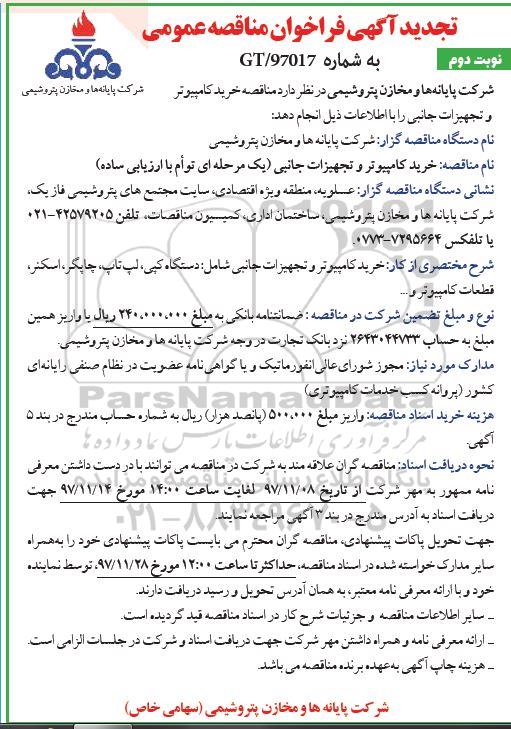 تجدید آگهی فراخوان مناقصه عمومی
به شماره GT/97017
نوبت دوم
شرکت پایانه‌ها و مخازن پتروشیمی
شرکت پایانه‌ها و مخازن پتروشیمی در نظر دارد مناقصه خرید کامپیوتر
و تجهیزات جانبی را با اطلاعات ذیل انجام دهد:
نام دستگاه مناقصه گزار: شرکت پایانه ها و مخازن پتروشیمی
نام مناقصه: خرید کامپیوتر و تجهیزات جانبی (یک مرحله ای توأم با ارزیابی ساده)
نشانی دستگاه مناقصه گزار: عسلویه، منطقه ویژه اقتصادی، سایت مجتمع های پتروشیمی فاز یک،
شرکت پایانه ها و مخازن پتروشیمی، ساختمان اداری، کمیسیون مناقصات، تلفن ۴۲۵۷۹۲۰۵-۰۲۱
یا تلفکس ۷۲۹۵۶۶۴-۰۷۷۳.
شرح مختصری از کار: خرید کامپیوتر و تجهیزات جانبی شامل: دستگاه کپی، لپ تاپ، چاپگر، اسکنر،
قطعات کامپیوتر و...
نوع و مبلغ تضمین شرکت در مناقصه : ضمانتنامه بانکی به مبلغ ۲۴۰،۰۰۰،۰۰۰ ریال یا واریز همین
مبلغ به حساب ۲۶۴۳۰۴۴۷۳۳ نزد بانک تجارت در وجه شرکت پایانه ها و مخازن پتروشیمی.
مدارک مورد نیاز: مجوز شورای عالی انفورماتیک و یا گواهی نامه عضویت در نظام صنفی رایانه ای
کشور (پروانه کسب خدمات کامپیوتری)
هزینه خرید اسناد مناقصه: واریز مبلغ ۵۰۰،۰۰۰ (پانصد هزار) ریال به شماره حساب مندرج در بند ۵
آگهی.
نحوه دریافت اسناد: مناقصه گران علاقه مند به شرکت در مناقصه می توانند با در دست داشتن معرفی
نامه ممهور به مهر شرکت از تاریخ ۹۷/۱۱/۰۸ لغایت ساعت ۱۴:۰۰ مورخ ۹۷/۱۱/۱۴ جهت
دریافت اسناد به آدرس مندرج در بند ۳ آگهی مراجعه نمایند.
جهت تحویل پاکات پیشنهادی، مناقصه گران محترم می بایست پاکات پیشنهادی خود را به همراه
سایر مدارک خواسته شده در اسناد مناقصه، حداکثر تا ساعت ۱۲:۰۰ مورخ ۹۷/۱۱/۲۸، توسط نماینده
خود و با ارائه معرفی نامه معتبر، به همان آدرس تحویل و رسید دریافت دارند.
_ سایر اطلاعات مناقصه و جزئیات شرح کار در اسناد مناقصه قید گردیده است.
_ ارائه معرفی نامه و همراه داشتن مهر شرکت جهت دریافت اسناد و شرکت در جلسات الزامی است.
_ هزینه چاپ آگهی به عهده برنده مناقصه می باشد.
شرکت پایانه ها و مخازن پتروشیمی (سهامی خاص)
ParsNamadData